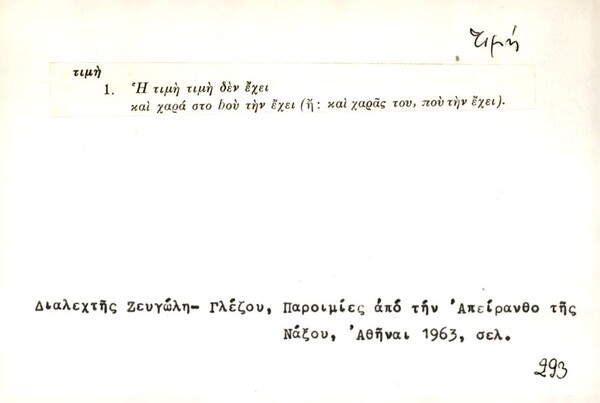 τιμή
τιμὴ
1. Ἡ τιμὴ τιμὴ δὲν ἔχει
καὶ χαρά στο bοὺ τὴν ἔχει (ἤ: καὶ χαρᾶς του, ποὺ τὴν ἔχει).
Διαλεχτῆς Ζευγώλη- Γλέζου, Παροιμίες ἀπό τήν Ἀπείρανθο τῆς
Νάξου, Ἀθῆναι 1963, σελ.
293